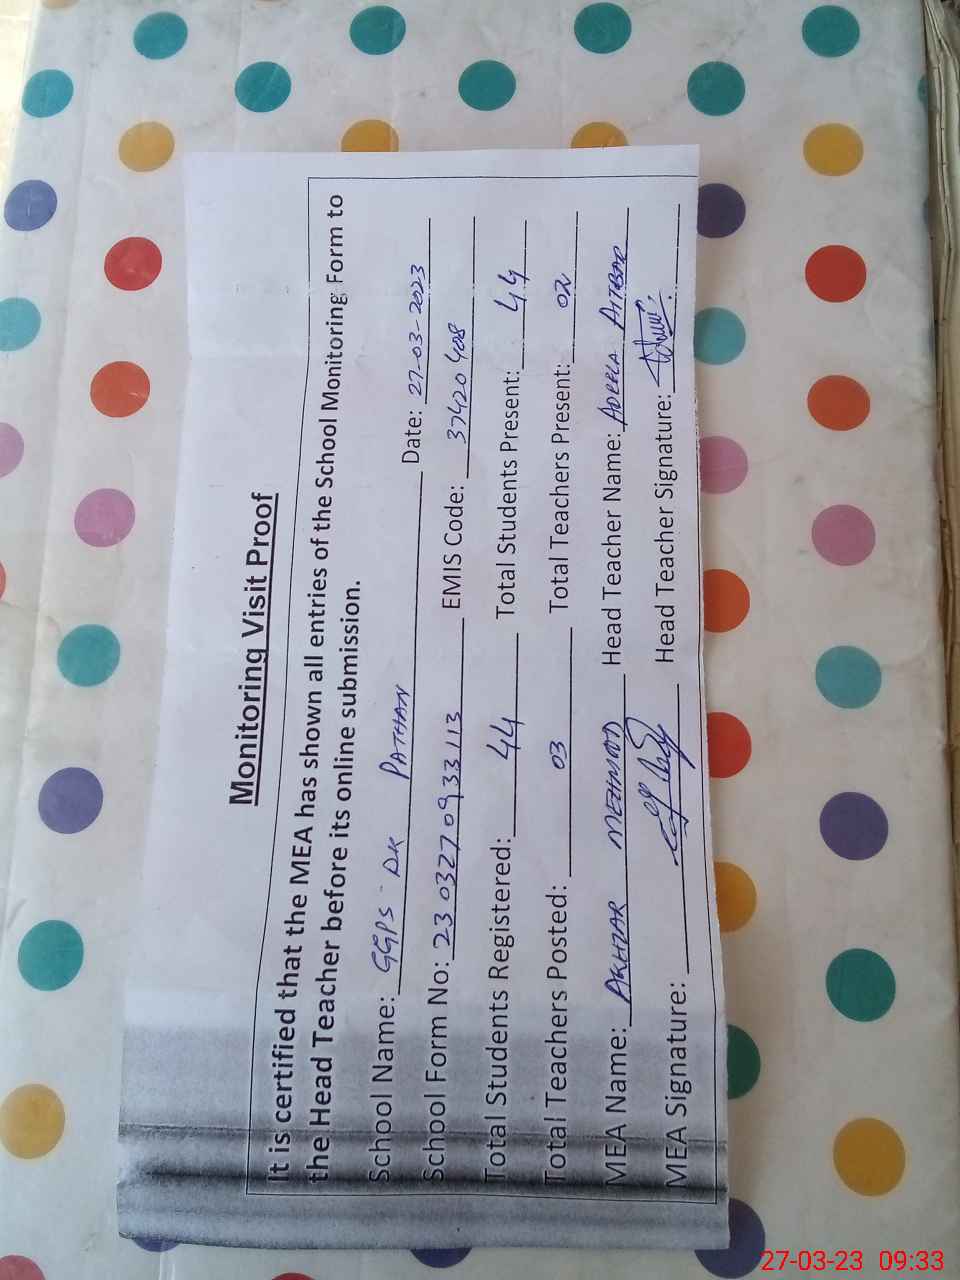 Monitoring Visit Proof
It is certified that the MEA has shown all entries of the School Monitoring Form to
the Head Teacher before its online submission.
School Name: GGPS DK PATHAN Date: 27-03-2023
School Form No: 2303270933113 EMIS Code: 37420408
Total Students Registered: 44 Total Students Present: 44
Total Teachers Posted: 03 Total Teachers Present: 02
MEA Name: AKHZAR MEHMOOD Head Teacher Name: ADEELA AITBAR
MEA Signature: Head Teacher Signature:
27-03-23 09:33